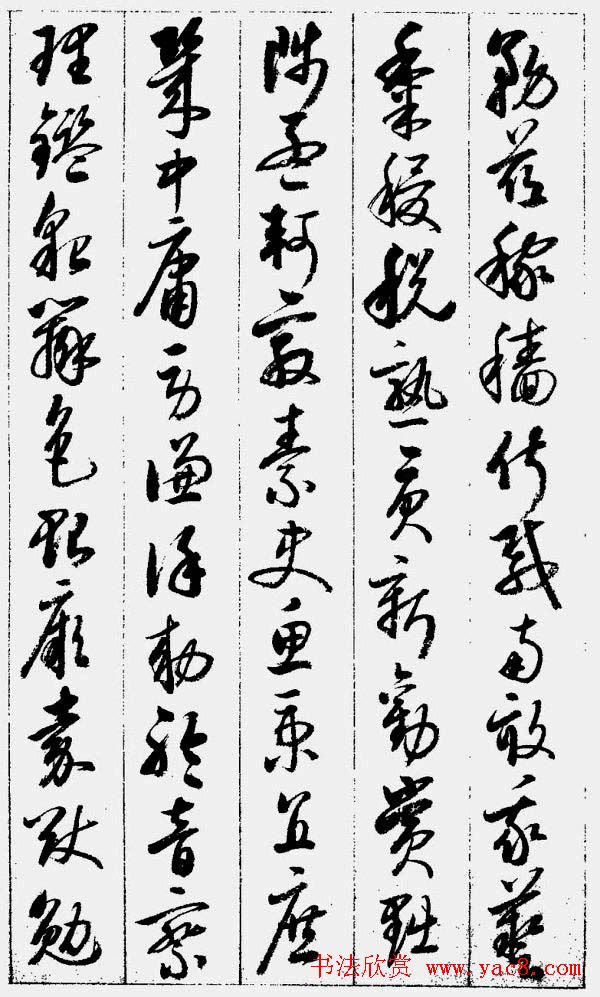 務茲稼穡俶載南畝我藝
黍稷稅熟貢新勸賞黜
陟孟軻敦素史魚秉直庶
幾中庸勞謙謹敕聆音察
理鑑貌辨色貽厥嘉猷勉
书法欣赏 www.yac8.com